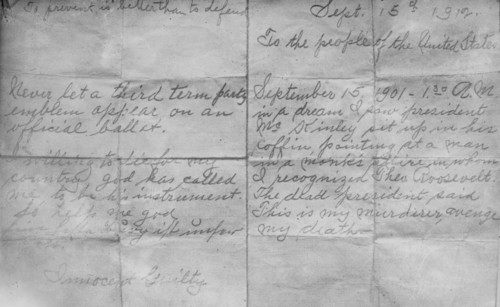 To prevent is better than to defend
Never let a third term party
emblem appear on an
official ballot.
willing to die for my
country god has called
me to be his instrument.
So help me god
Innocent Guilty
Sept. 15th 1912.
To the people of the United States
September 15, 1901 - 1:30 A.M.
in a dream I saw president
McKinley sit up in his
coffin pointing at a man
in a monk's attire in whom
I recognized Theo. Roosevelt.
The dead president said
This is my murderer, avenge
my death